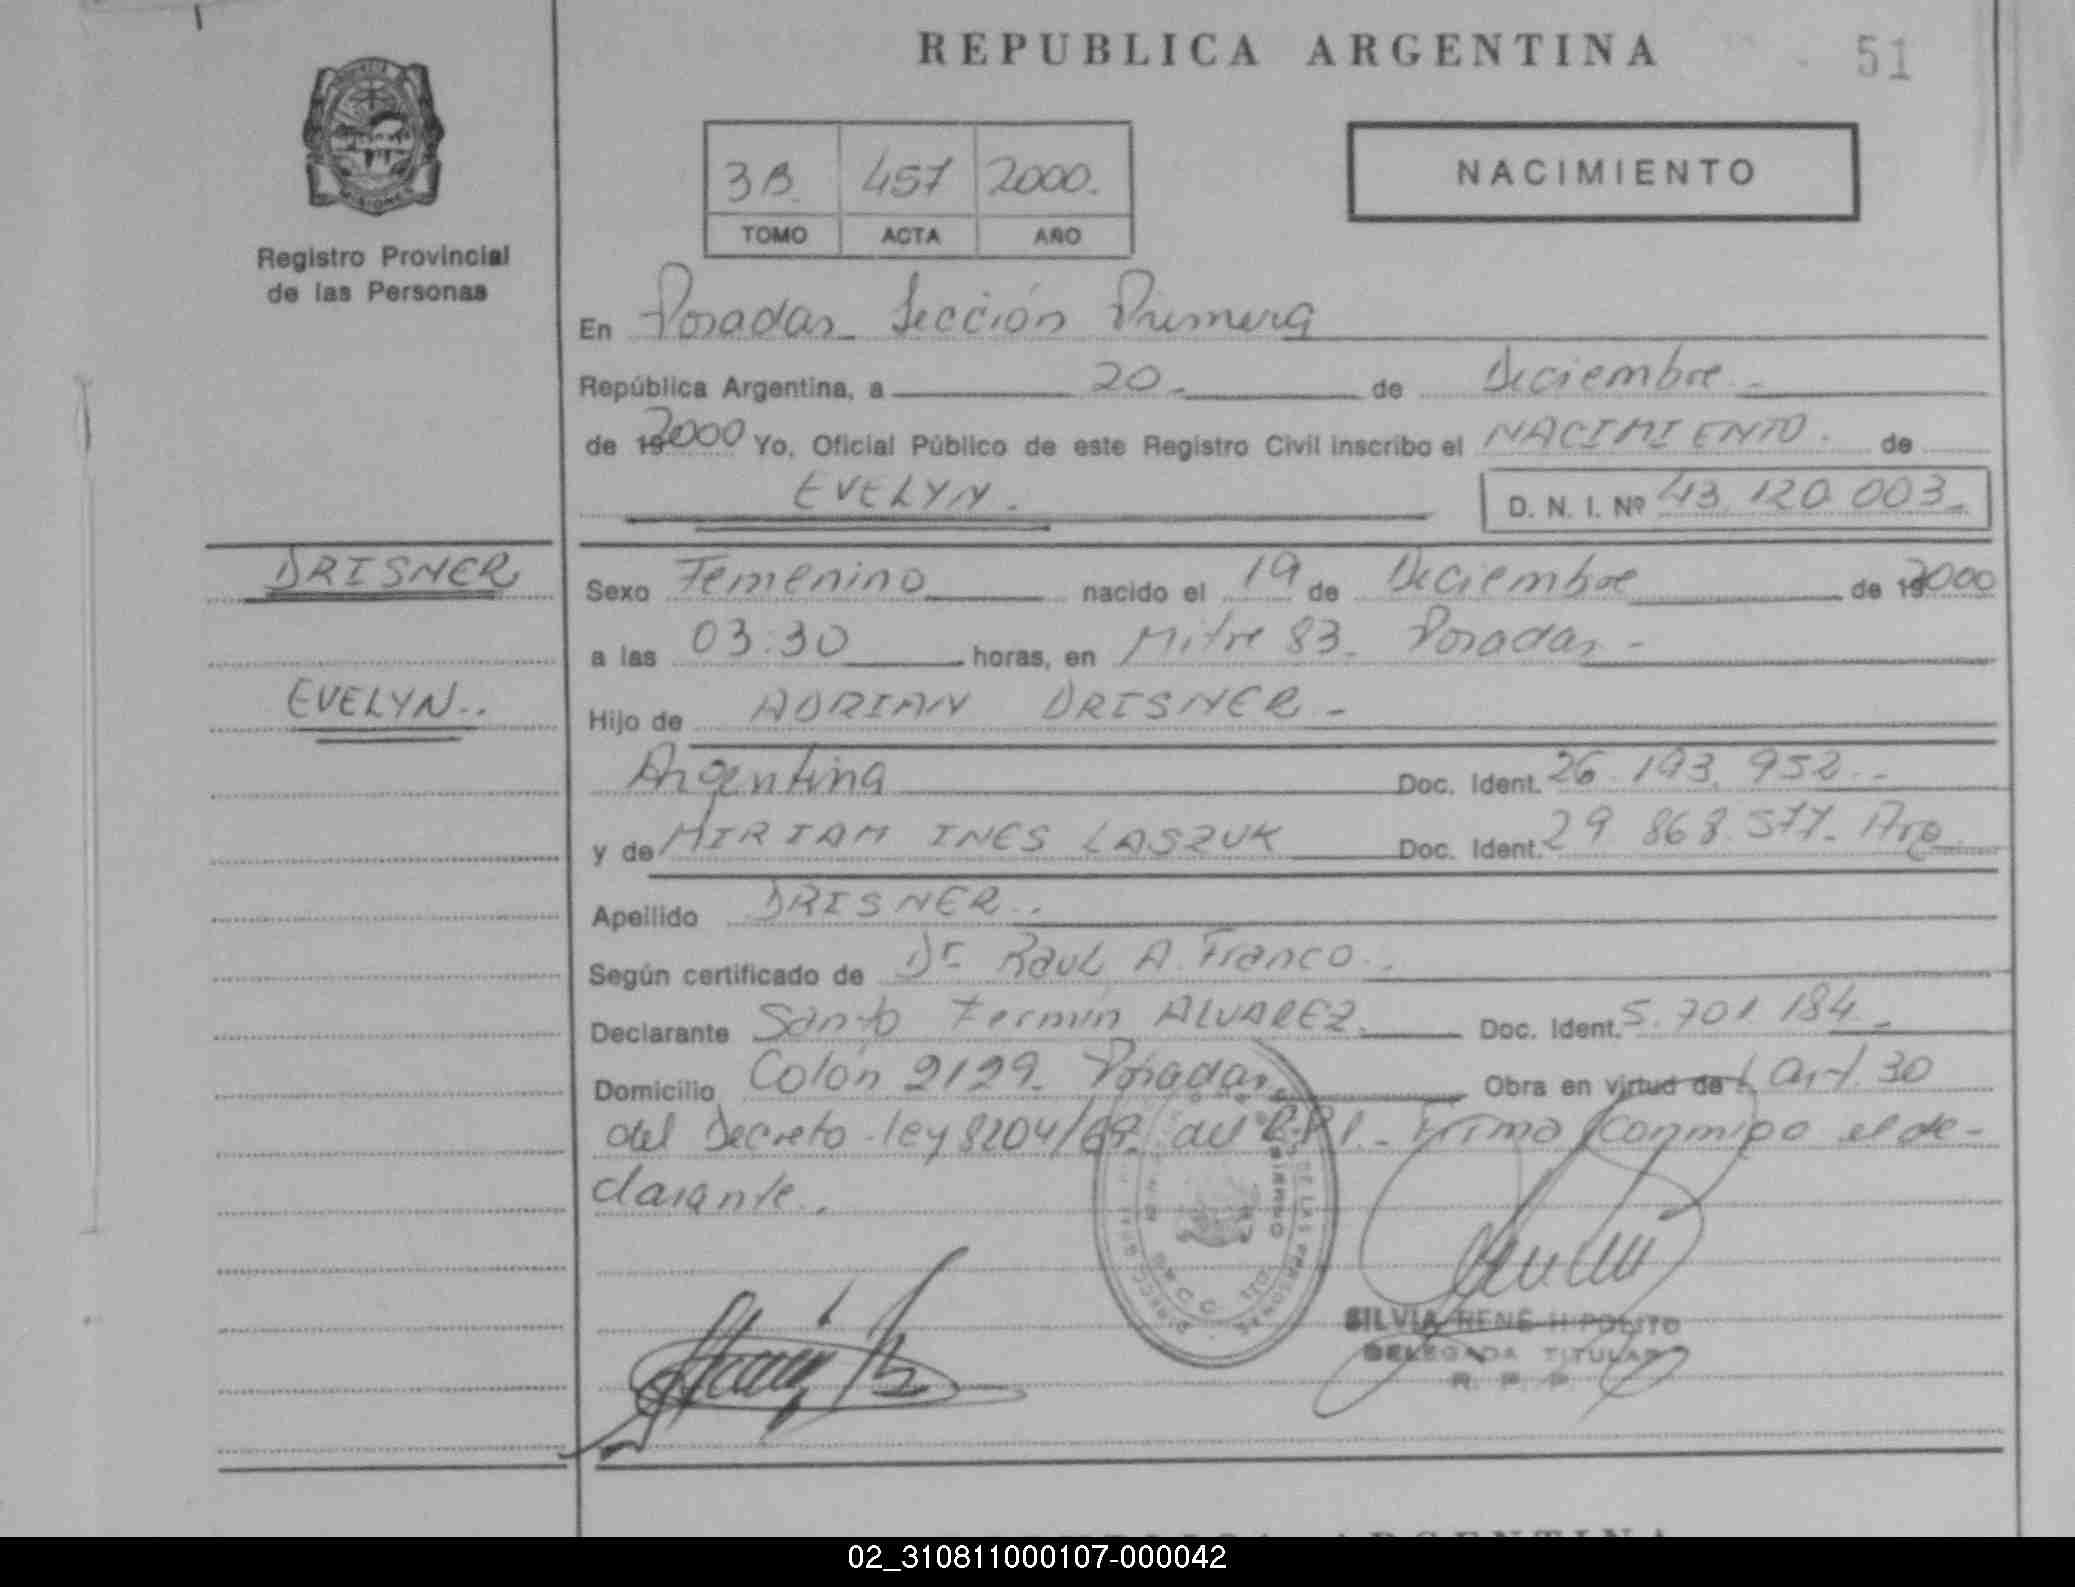 REPUBLICA ARGENTINA
51
Registro Provincial
de las Personas
3B. 457 2000.
TOMO ACTA AÑO
NACIMIENTO
En Posadas Sección Primera
República Argentina, a 20 de Diciembre
de 19 2000 Yo, Oficial Público de este Registro Civil inscribo el NACIMIENTO. de
EVELYN.
D. N. I. Nº 43.120.003
DRISNER
EVELYN..
Sexo Femenino nacido el 19 de Diciembre de 19 2000
a las 03:30 horas, en Mitre 83. Posadas
Hijo de ADRIAN DRISNER
Argentina Doc. Ident. 26.193.952
y de MIRIAM INES LASZUK Doc. Ident. 29.868.577. Arg
Apellido DRISNER..
Según certificado de Dr Raul A. Franco.
Declarante Santo Fermín ALVAREZ Doc. Ident. 5.701.184
Domicilio Colón 2129. Posadas Obra en virtud de Art. 30
del Decreto-ley 8204/69. del Firma conmigo el de-
clarante.
DE LAS PERSONAS
SILVIA RENÉ HIPOLITO
DELEGADA TITULAR
R. P. P.
REPUBLICA ARGENTINA
02_310811000107-000042